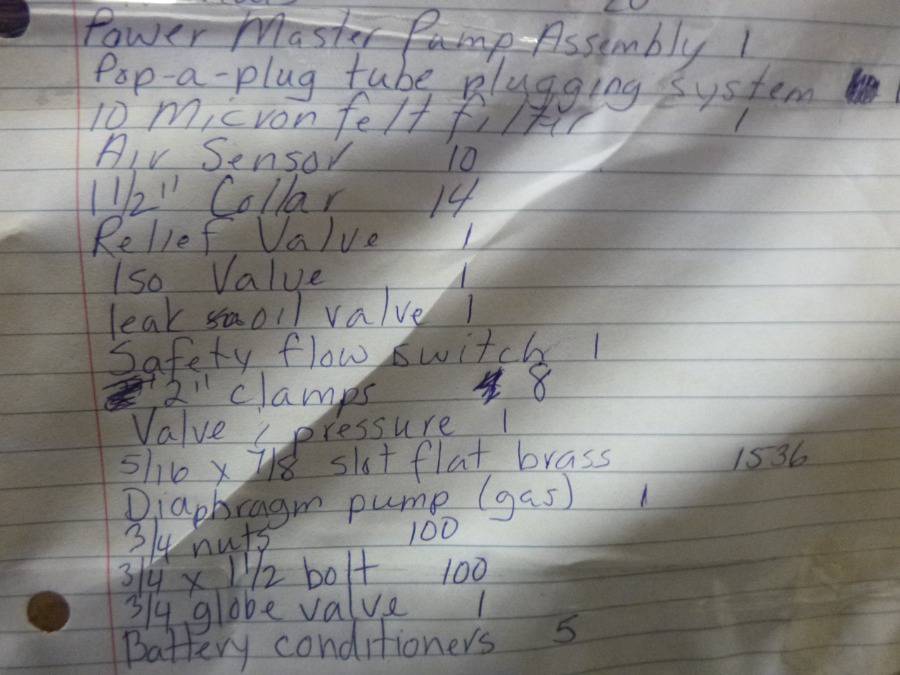 20
Power Master Pump Assembly 1
Pop-a-plug tube plugging system 1
10 Micron felt filter 1
Air Sensor 10
1 1/2" Collar 14
Relief Valve 1
Iso Valve 1
leak oil valve 1
Safety flow switch 1
2" clamps 8
Valve, pressure 1
5/16 x 7/8 slot flat brass 1536
Diaphragm pump (gas) 1
3/4 nuts 100
3/4 x 1 1/2 bolt 100
3/4 globe valve 1
Battery conditioners 5